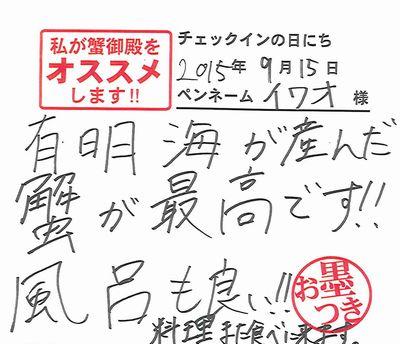 私が蟹御殿を
オススメ
します!!
チェックインの日にち
2015年9月15日
ペンネーム イワオ 様
有明海が産んだ
蟹が最高です!!
風呂も良い!!
料理また食べに来ます。
お墨つき